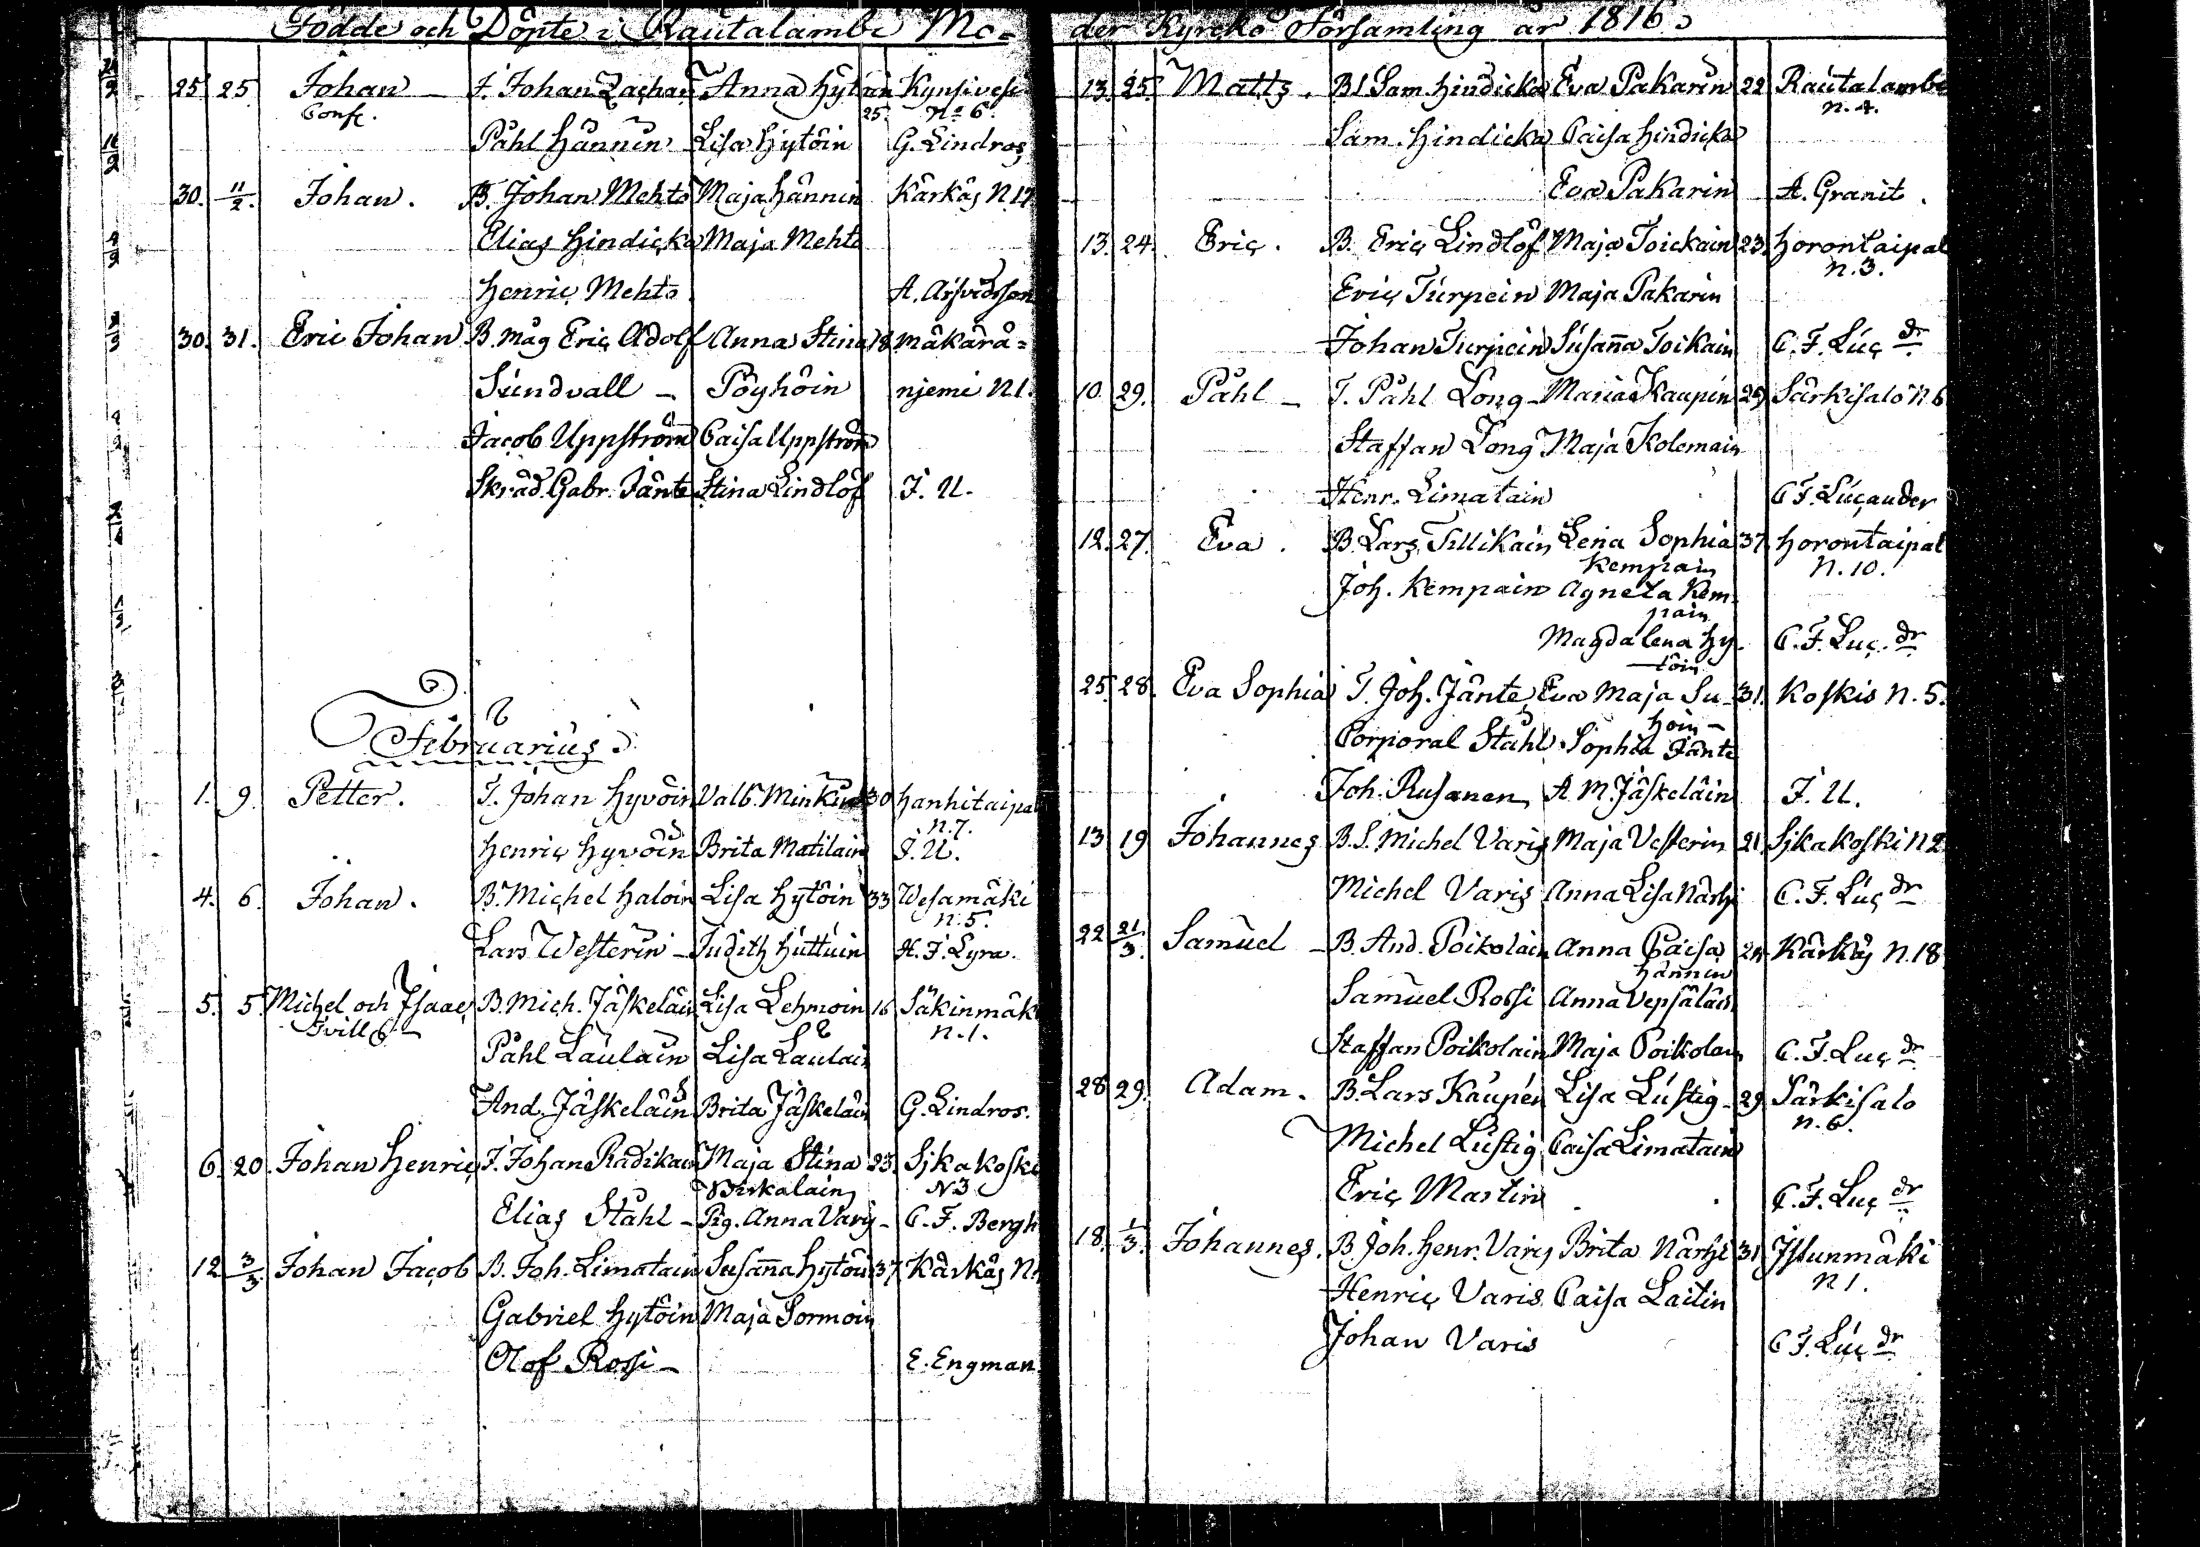 Födde och Döpte i Rautalambi Mo-
25. 25 Johan - T. Johan Zachar Anna Hytöin 25. Kynsivesi
Conf. No 6.
Påhl Hännin Lisa Hytöin G. Lindros
30. 11/2. Johan. B. Johan Mehto Maja Hännin Kärkäs N.12
Elias Hindicka Maja Mehto
Henric Mehto A. Arfvidsson
30. 31. Eric Johan B. måg Eric Adolf Anna Stina 18 Mäkärä=
Sundvall - Pöyhöin njemi N.1.
Jacob Uppström Caisa Uppström
Skräd. Gabr. Jänte Stina Lindlöf J. U.
Februarius.
1. 9. Petter. T. Johan Hyvöin Valb. Minkin 30 Hanhitaipal
N.7.
Henric Hyvöin Brita Matilain J. U.
4. 6. Johan. B. Michel Haloin Lisa Hytöin 33 Wesamäki
N.5.
Lars Westerin - Judith Huttuin H. J. Lyra.
5. 5. Michel och Isaac B. Mich. Jäskeläin Lisa Lehmoin 16 Säkinmäk
Tvill. N.1.
Påhl Laulain Lisa Laulain
And. Jäskeläin Brita Jäskeläin G. Lindros.
6. 20. Johan Henric T. Johan Radikain Maja Stina 23. Sjkakoski
Pirkalain N3
Elias Stahl - Pig. Anna Varis - C. F. Bergh
12 3/3. Johan Jacob B. Joh. Limatain Susanna Hytöin 37 Kärkäs N.
Gabriel Hytöin Maja Sormoin
Olof Rossi - E. Engman.
der Kyrcko Församling år 1816.
13. 25. Matts. B.S. Sam. Hindicka Eva Pakarin 22 Rautalambi
N.4.
Sam. Hindicka Caisa Hindicka
Eva Pakarin A. Granit.
13. 24. Eric. B. Eric Lindlöf Maja Toickain 23. Horontaipal
N.3.
Eric Turpein Maja Pakarin
Johan Turpein Susanna Toikain C. F. Luc dr
10. 29. Påhl - T. Påhl Long - Maria Kaupin 29 Särkisalo N 6
Staffan Long Maja Kolemain
Henr. Limatain C F. Lucander
12. 27. Eva. B. Lars Tillikain Lena Sophia 37. Horontaipal
Kempain N.10.
Joh. Kempain Agneta Kem-
pain
Magdalena Hy- C. F. Luc. dr
töin
25. 28. Eva Sophia T. Joh. Jänte Eva Maja Su- 31. Koskis N.5.
hoin -
Corporal Stahl. Sophia Jänte
Joh. Rusanen A M. Jäskeläin J. U.
13 19 Johannes B.S. Michel Varis Maja Vesterin 21. Sjkakoski N 2
Michel Varis Anna Lisa Närhi C. F. Luc dr
22 21/3. Samuel - B. And. Poikolain Anna Caisa 24 Kärkäs N.18
Hännin
Samuel Rossi Anna Vepsäläin
Staffan Poikolain Maja Poikolain C. F. Luc dr
28 29. Adam. B. Lars Kaupén Lisa Lustig - 29 Särkisalo
N.6.
Michel Lustig Caisa Limatain
Eric Martin C. F. Luc dr
18. 1/3. Johannes. B. Joh. Henr. Varis Brita Närhi 31 Istunmäki
N 1.
Henric Varis Caisa Laitin
Johan Varis C F. Luc dr